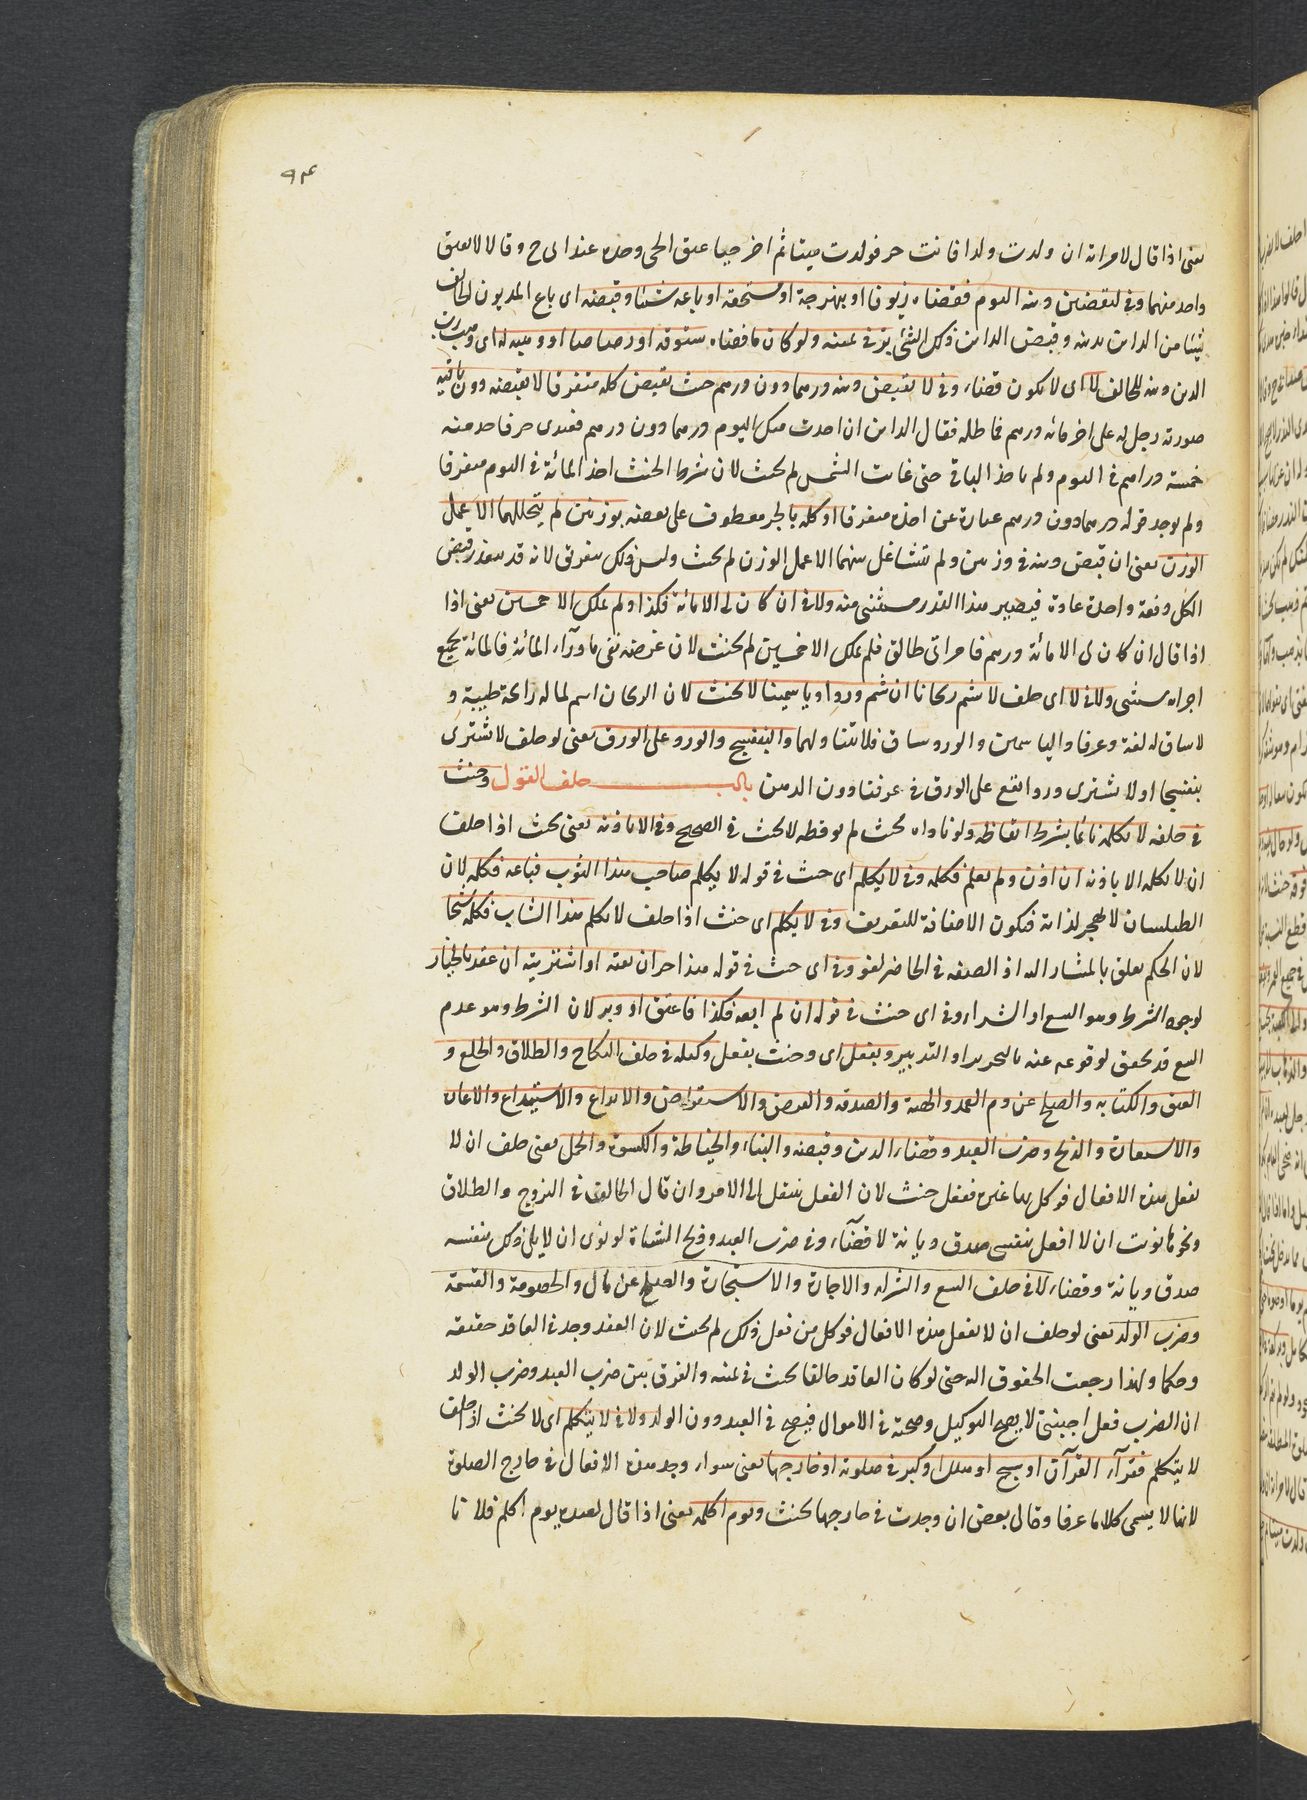 ٩٤
يعنى اذا قال لامراته ان ولدت ولدا فانت حر فولدت ميتا ثم اخر حيا عتق الحى وحده عند ابى ح وقالا لا يعتق
واحد منهما وفى ليقضين دينه اليوم فقضاه زيوفا او بهرجة او مستحقة او باعه شيئا وقبضه اى باع المديون الحالف
شيئا من الداين بدينه وقبض الداين ذلك الشئ بر فى يمينه ولو كان ما قضاه ستوقة او رصاصا او وهبه له اى وهب رب
الدين دينه للحالف لا اى لا يكون قضاء وفى لا يقبض دينه درهما دون درهم حنث بقبض كله متفرقا لا بقبضه دون باقيه
صورته رجل له على اخر مائة درهم فماطله فقال الداين ان اخذت منك اليوم درهما دون درهم فعبدى حر فاخذ منه
خمسة دراهم فى اليوم ولم ياخذ الباقى حتى غابت الشمس لم يحنث لان شرط الحنث اخذ المائة فى اليوم متفرقا
ولم يوجد قوله درهما دون درهم عبارة عن اخذه متفرقا او كله بالجر معطوف على بعضه بوزنين لم يتخللهما الا عمل
الوزن يعنى ان قبض دينه فى وزنين ولم يتشاغل بينهما الا عمل الوزن لم يحنث وليس ذلك بتفريق لانه قد يتعذر قبض
الكل دفعة واحدة عادة فيصير هذا القدر مستثنى منه ولا فى ان كان لى الا مائة فكذا ولم يملك الا خمسين يعنى اذا
اذا قال ان كان لى الا مائة درهم فامراتى طالق فلم يملك الا خمسين لم يحنث لان غرضه نفى ما وراء المائة فالمائة بجميع
اجزاه مستثنى ولا فى لا اى حلف لا يشم ريحانا ان شم وردا او ياسمينا لا يحنث لان الريحان اسم لما له رائحة طيبة و
لا ساق له لغة وعرفا والياسمين والورد ساق فلا يتناولهما والبنفسج والورد على الورق يعنى لو حلف لا يشترى
بنفسجا او لا يشترى وردا تقع على الورق فى عرفنا دون الدهن باب حلف القول وحنث
فى حلفه لا يكلمه نائما بشرط ايقاظه ولو ناداه بحيث لم يوقظه لا يحنث فى الصحيح وفى الا باذنه يعنى يحنث اذا حلف
ان لا يكلمه الا باذنه ان اذن ولم يعلم فكلمه وفى لا يكلم اى حنث فى قوله لا يكلم صاحب هذا الثوب فباعه فكلمه لان
الطيلسان لا يهجر لذاته فتكون الاضافة للتعريف وفى لا يكلم اى حنث اذا حلف لا يكلم هذا الشاب فكلمه شيخا
لان الحكم يعلق بالمشار اليه اذ الصفة فى الحاضر لغو وفى اى حنث فى قوله هذا حر ان بعته او اشتريته ان عقد بالخيار
لوجود الشرط وهو البيع او الشراء وفى اى حنث فى قوله ان لم ابعه فكذا فاعتق او دبر لان الشرط وهو عدم
البيع قد تحقق لوقوعه عنه بالتحرير او التدبير وبفعل اى وحنث بفعل وكيله فى حلف النكاح والطلاق والخلع و
العتق والكتابة والصلح عن دم العمد والهبة والصدقة والقرض والاستقراض والايداع والاستيداع والاعارة
والاستعارة والذبح وضرب العبد وقضاء الدين وقبضه والبناء والخياطة والكسوة والحمل يعنى حلف ان لا
يفعل هذه الافعال فوكل بها غيره ففعل حنث لان الفعل ينتقل الى الامر وان قال الحالف فى التزوج والطلاق
ونحوها نويت ان لا افعل بنفسى صدق ديانة لا قضاء وفى ضرب العبد وذبح الشاة لو نوى ان لا يلى ذلك بنفسه
صدق ديانة وقضاء لا فى حلف البيع والشراء والاجارة والاستجارة والصلح عن مال والخصومة والقسمة
وضرب الولد يعنى لو حلف ان لا يفعل هذه الافعال فوكل من فعل ذلك لم يحنث لان العقد وجد فى العاقد حقيقة
وحكما ولهذا رجعت الحقوق اليه حتى لو كان العاقد حالفا يحنث فى يمينه والفرق بين ضرب العبد وضرب الولد
ان الضرب فعل اجنبى لا يصح التوكيل وصحته فى الاموال فيصح فى العبد دون الولد ولا فى لا يتكلم اى لا يحنث اذا حلف
لا يتكلم فقرآء القرآن او سبح او هلل او كبر فى صلوته او خارجها يعنى سواء وجد هذه الافعال فى خارج الصلوة
لانها لا يسمى كلاما عرفا وقال بعض ان وجدت فى خارجها يحنث ويوم اكلمه يعنى اذا قال لعبده يوم اكلم فلانا